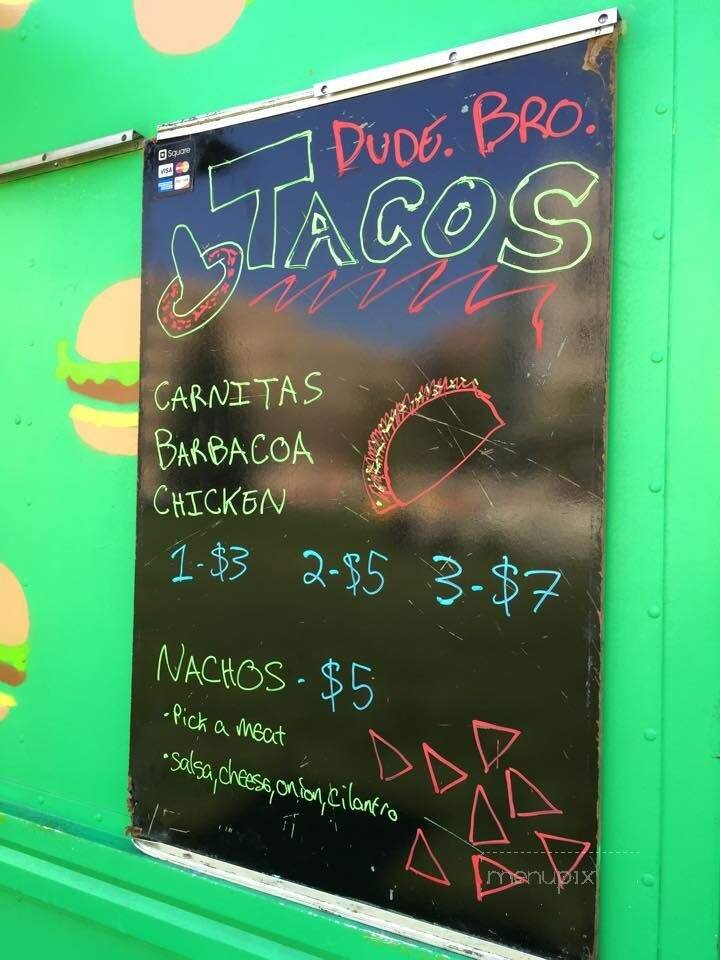 Square
VISA
DUDE. BRO.
TACOS
CARNITAS
BARBACOA
CHICKEN
1-$3 2-$5 3-$7
NACHOS - $5
• Pick a meat
• salsa, cheese, onion, cilantro
menupix